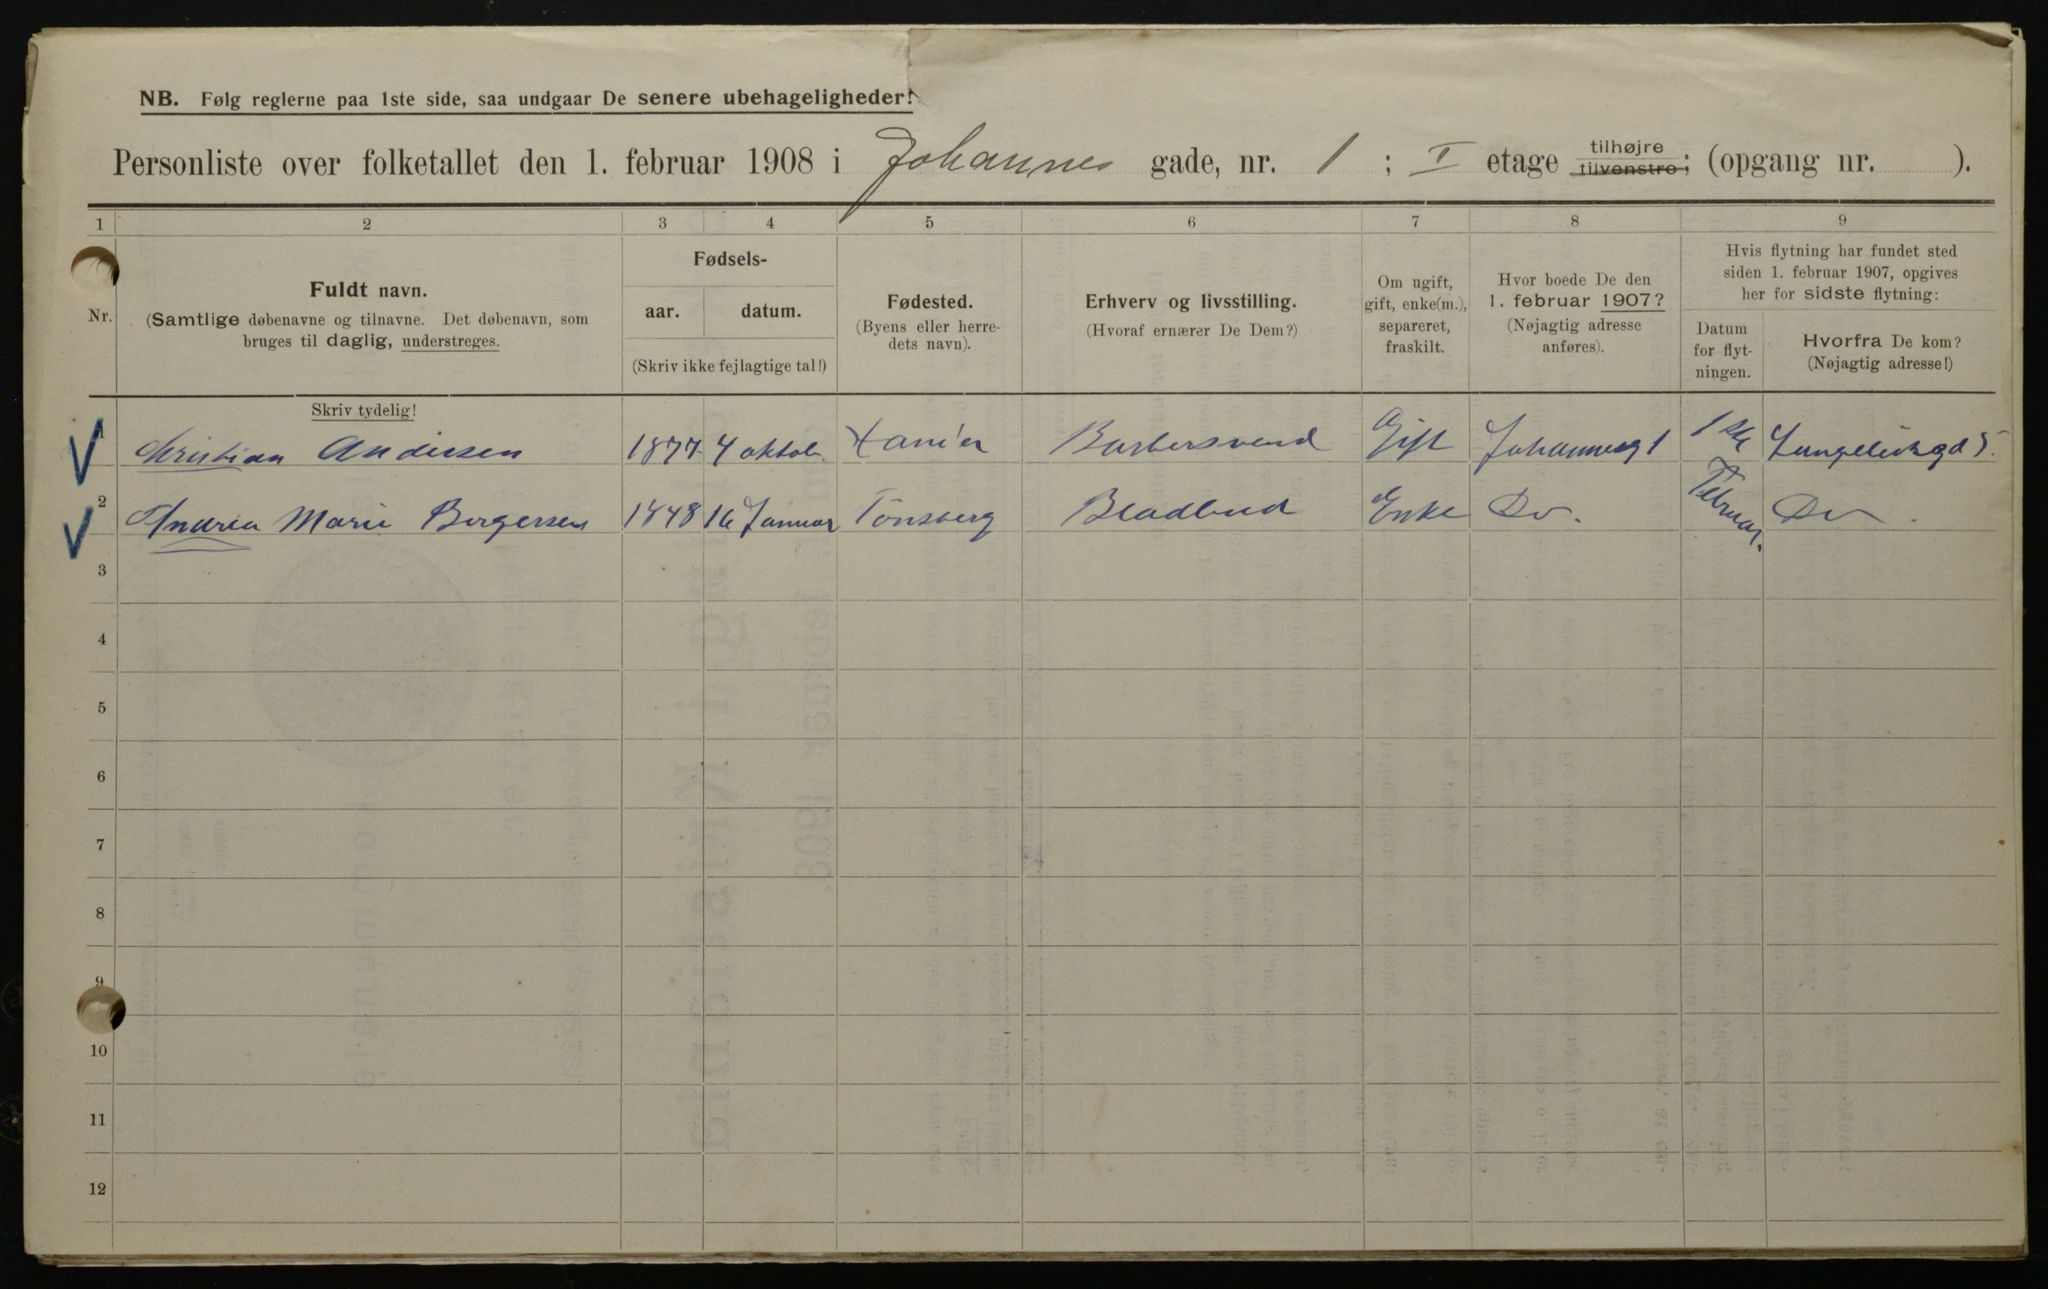 NB. Følg reglerne paa 1ste side, saa undgaar De senere ubehageligheder!
Personliste over folketallet den 1. februar 1908 i Johannes gade, nr. 1 ; I etage tilhøjre tilvenstre; (opgang nr. ).
1 2 3 4 5 6 7 8 9
Nr.
Fuldt navn.
(Samtlige døbenavne og tilnavne. Det døbenavn, som
bruges til daglig, understreges.
Skriv tydelig!
Fødsels-
aar. datum.
(Skriv ikke fejlagtige tal!)
Fødested.
(Byens eller herre-
dets navn).
Erhverv og livsstilling.
(Hvoraf ernærer De Dem?)
Om ugift,
gift, enke(m.),
separeret,
fraskilt.
Hvor boede De den
1. februar 1907?
(Nøjagtig adresse
anføres).
Hvis flytning har fundet sted
siden 1. februar 1907, opgives
her for sidste flytning:
Datum
for flyt-
ningen.
Hvorfra De kom?
(Nøjagtig adresse!)
1 Christian Andersen 1877 4 oktob. Barbersvend Gift Johannesg 1 1ste
2 Andrea Marie Borgersen 1848 16 Januar Tønsberg Bladbud Enke Do. Februar. Do.
3
4
5
6
7
8
9
10
11
12